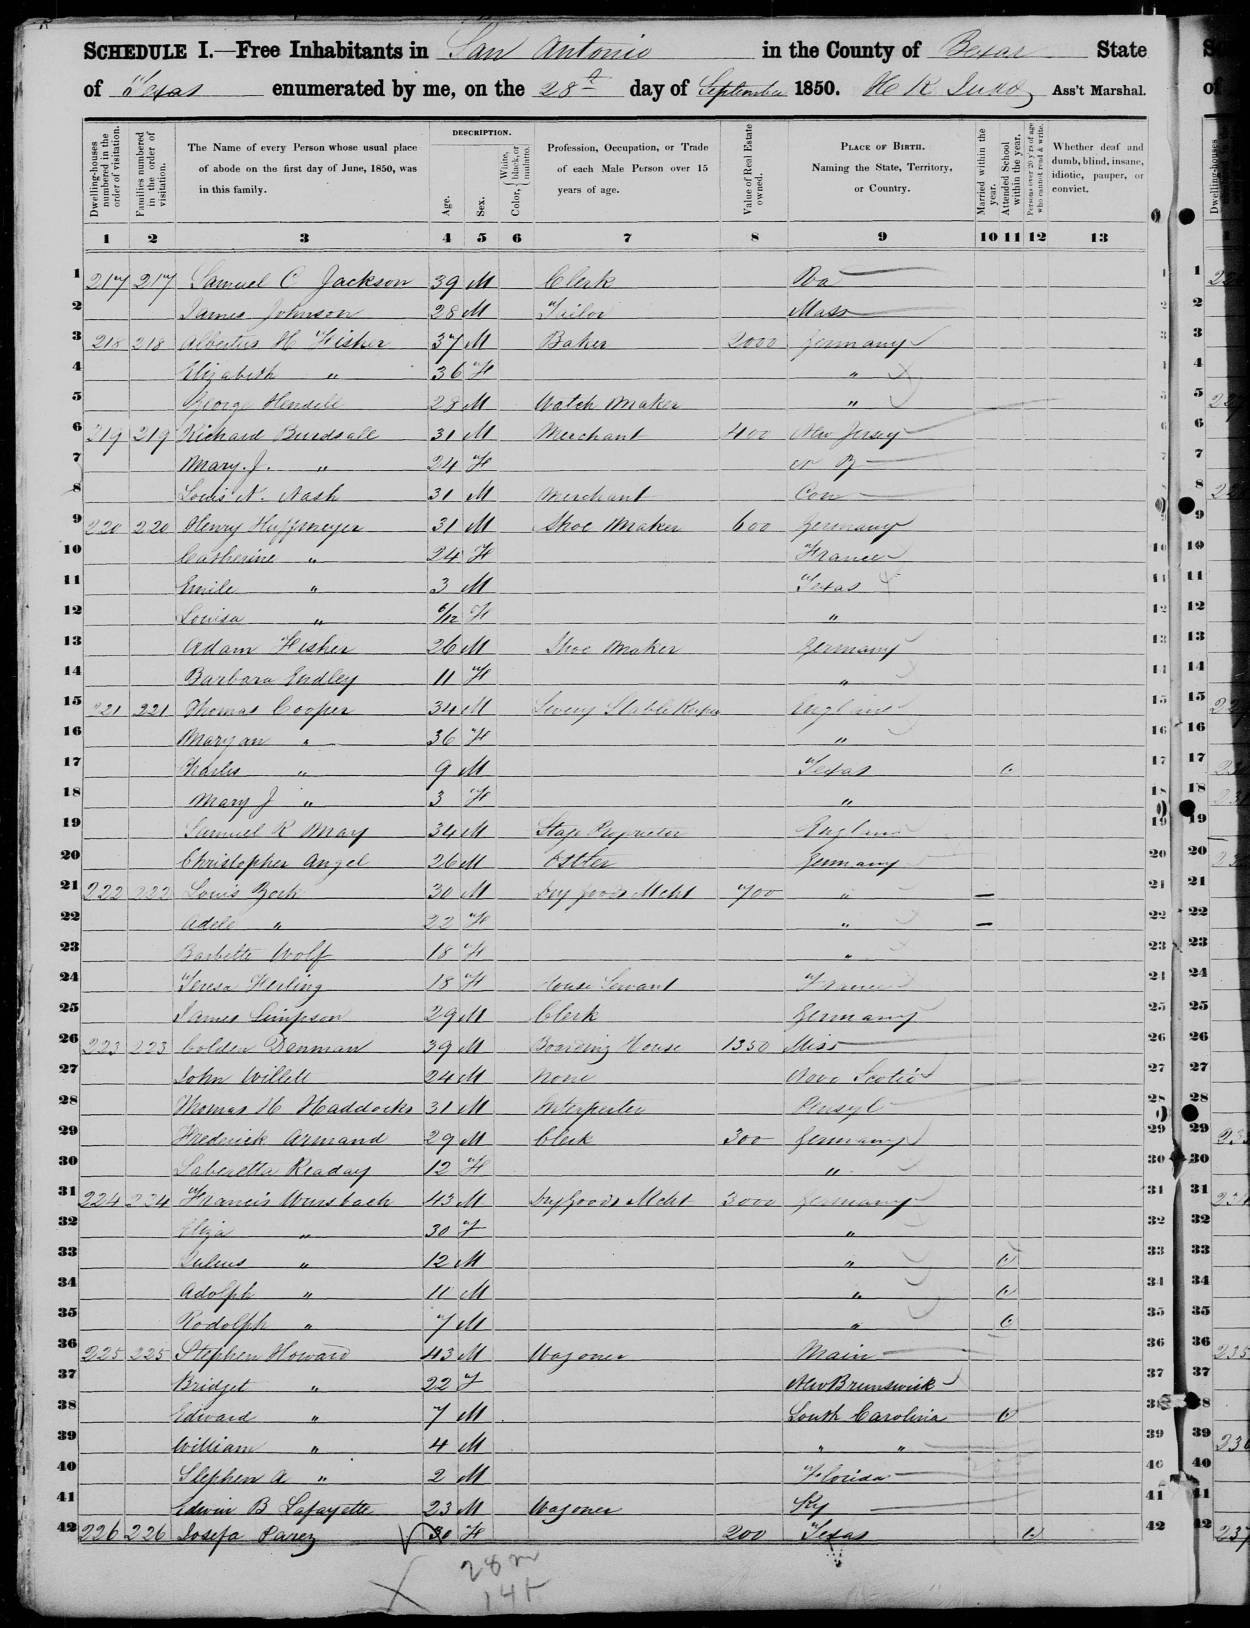 SCHEDULE I.—Free Inhabitants in San Antonio in the County of Bexar State
of Texas enumerated by me, on the 28th day of September 1850. H K Judd Ass't Marshal.
Dwelling-houses numbered in the order of visitation.
Families numbered in the order of visitation.
The Name of every Person whose usual place of abode on the first day of June, 1850, was in this family.
DESCRIPTION.
Age.
Sex.
Color, White, black, or mulatto.
Profession, Occupation, or Trade of each Male Person over 15 years of age.
Value of Real Estate owned.
PLACE OF BIRTH. Naming the State, Territory, or Country.
Married within the year.
Attended School within the year.
Persons over 20 y'rs of age who cannot read & write.
Whether deaf and dumb, blind, insane, idiotic, pauper, or convict.
1 2 3 4 5 6 7 8 9 10 11 12 13
1 217 217 Samuel C Jackson 39 M Clerk 1
2 James Johnson 28 M Tailor Mass 2
3 218 218 Albertus H Fisher 37 M Baker 2000 Germany 3
4 Elizabeth " 36 F " 4
5 George Hendell 28 M Watch Maker " 5
6 219 219 Richard Burdsall 31 M Merchant 400 New Jersey 6
7 Mary J. " 24 F 7
8 Louis N. Nash 31 M Merchant Con 8
9 220 220 Henry Huffmeyer 31 M Shoe Maker 600 Germany 9
10 Catherine " 24 F France 10
11 Emile " 3 M Texas 11
12 Louisa " 6/12 F " 12
13 Adam Fisher 26 M Shoe Maker Germany 13
14 Barbara Endley 11 F " 14
15 221 221 Thomas Cooper 34 M Livery Stable Keeper England 15
16 Maryan " 36 F " 16
17 Charles " 9 M Texas 17
18 Mary J " 3 F " 18
19 Samuel R May 34 M Stage Proprietor England 19
20 Christopher Angel 26 M Ostler Germany 20
21 222 222 Louis Zork 30 M Dry goods Mcht 700 " — 21
22 Adele " 22 F " — 22
23 Barbette Wolf 18 F " 23
24 Teresa Herling 18 F House Servant France 24
25 James Simpson 29 M Clerk Germany 25
26 223 223 Colden Denman 39 M Boarding House 1350 Miss 26
27 John Willett 24 M None Nova Scotia 27
28 Thomas H Haddocks 31 M Interpreter Pensyl 28
29 Frederick Armand 29 M Clerk 300 Germany 29
30 Readay 12 F " 30
31 224 224 Francis Wursbach 43 M Dry Goods Mcht 3000 Germany 31
32 Eliza " 30 F " 32
33 Julius " 12 M " 33
34 Adolph " 11 M " 34
35 Rodolph " 7 M " 35
36 225 225 Stephen Howard 43 M Wagoner Main 36
37 Bridget " 22 F New Brunswick 37
38 Edward " 7 M South Carolina 38
39 William " 4 M " " 39
40 Stephen A " 2 M Florida 40
41 Edwin B Lafayette 23 M Wagoner Ky 41
42 226 226 Josefa Parez 30 F 200 Texas 42
28 m
14 F